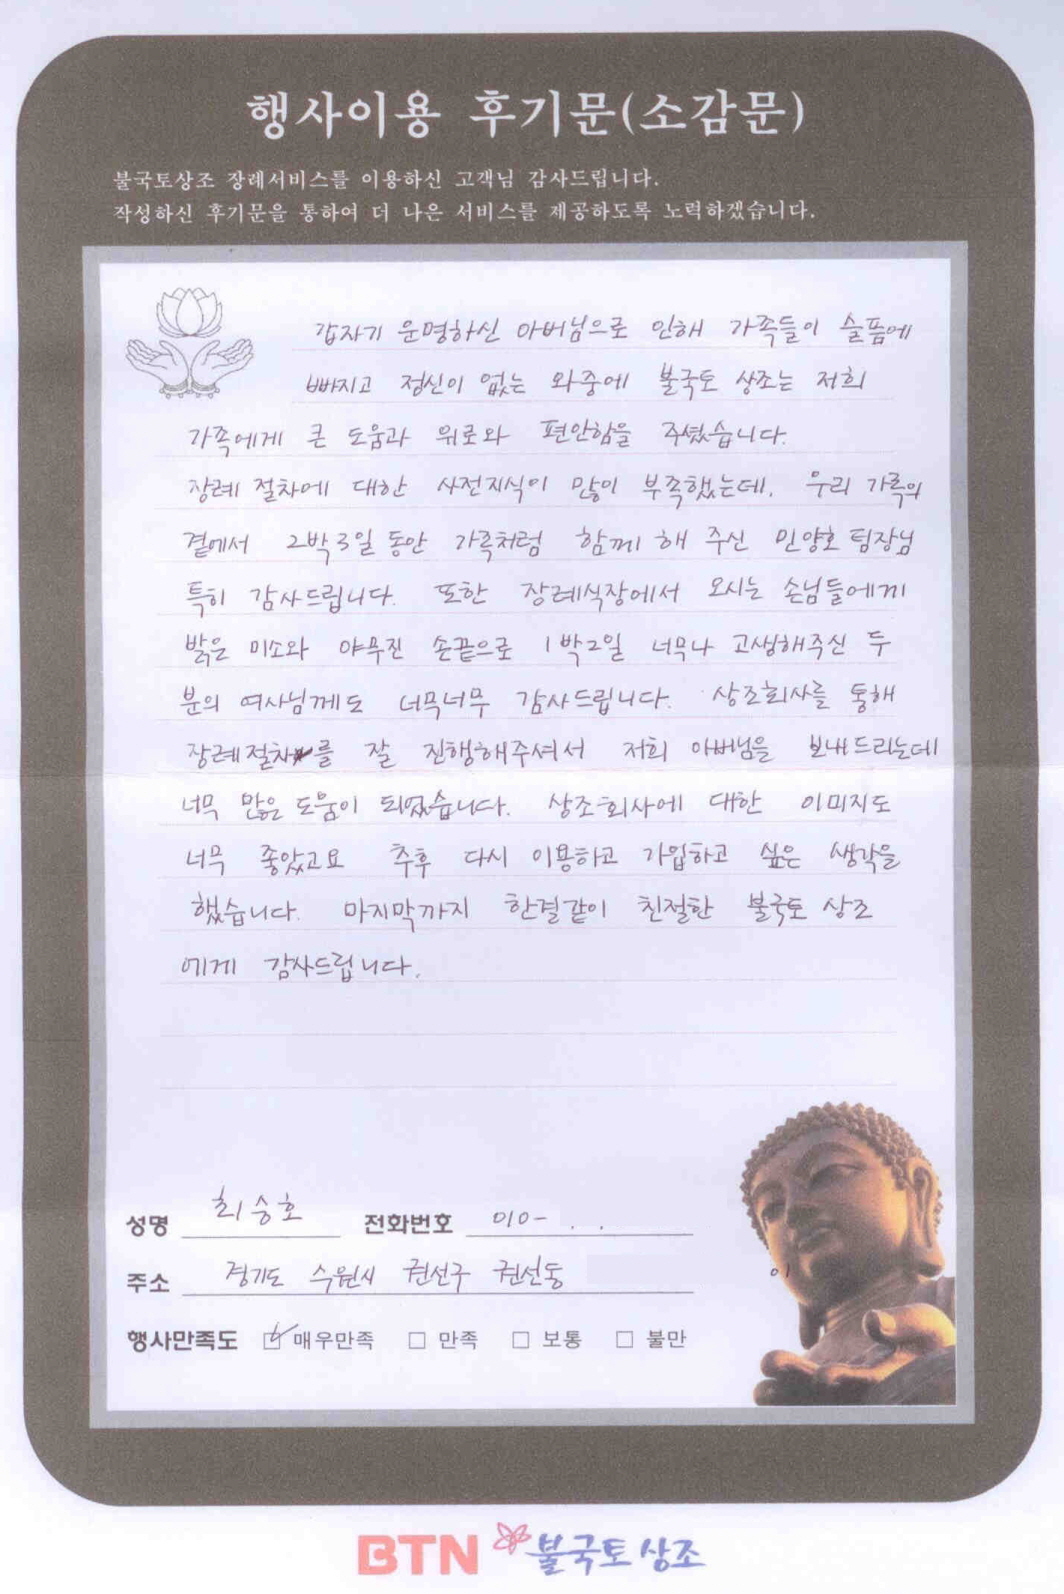 행사이용 후기문(소감문)
불국토상조 장례서비스를 이용하신 고객님 감사드립니다.
작성하신 후기문을 통하여 더 나은 서비스를 제공하도록 노력하겠습니다.
갑자기 운명하신 아버님으로 인해 가족들이 슬픔에
빠지고 정신이 없는 와중에 불국토 상조는 저희
가족에게 큰 도움과 위로와 편안함을 주셨습니다.
장례 절차에 대한 사전지식이 많이 부족했는데, 우리 가족의
곁에서 2박3일 동안 가족처럼 함께 해 주신 민양호 팀장님
특히 감사드립니다. 또한 장례식장에서 오시는 손님들에게
밝은 미소와 야무진 손끝으로 1박2일 너무나 고생해주신 두
분의 여사님께도 너무너무 감사드립니다. 상조회사를 통해
장례절차를 잘 진행해주셔서 저희 아버님을 보내드리는데
너무 많은 도움이 되었습니다. 상조회사에 대한 이미지도
너무 좋았고요 추후 다시 이용하고 가입하고 싶은 생각을
했습니다. 마지막까지 한결같이 친절한 불국토 상조
에게 감사드립니다.
성명 최승호 전화번호 010- . .
주소 경기도 수원시 권선구 권선동
이
행사만족도 ☑ 매우만족 □ 만족 □ 보통 □ 불만
BTN 불국토 상조